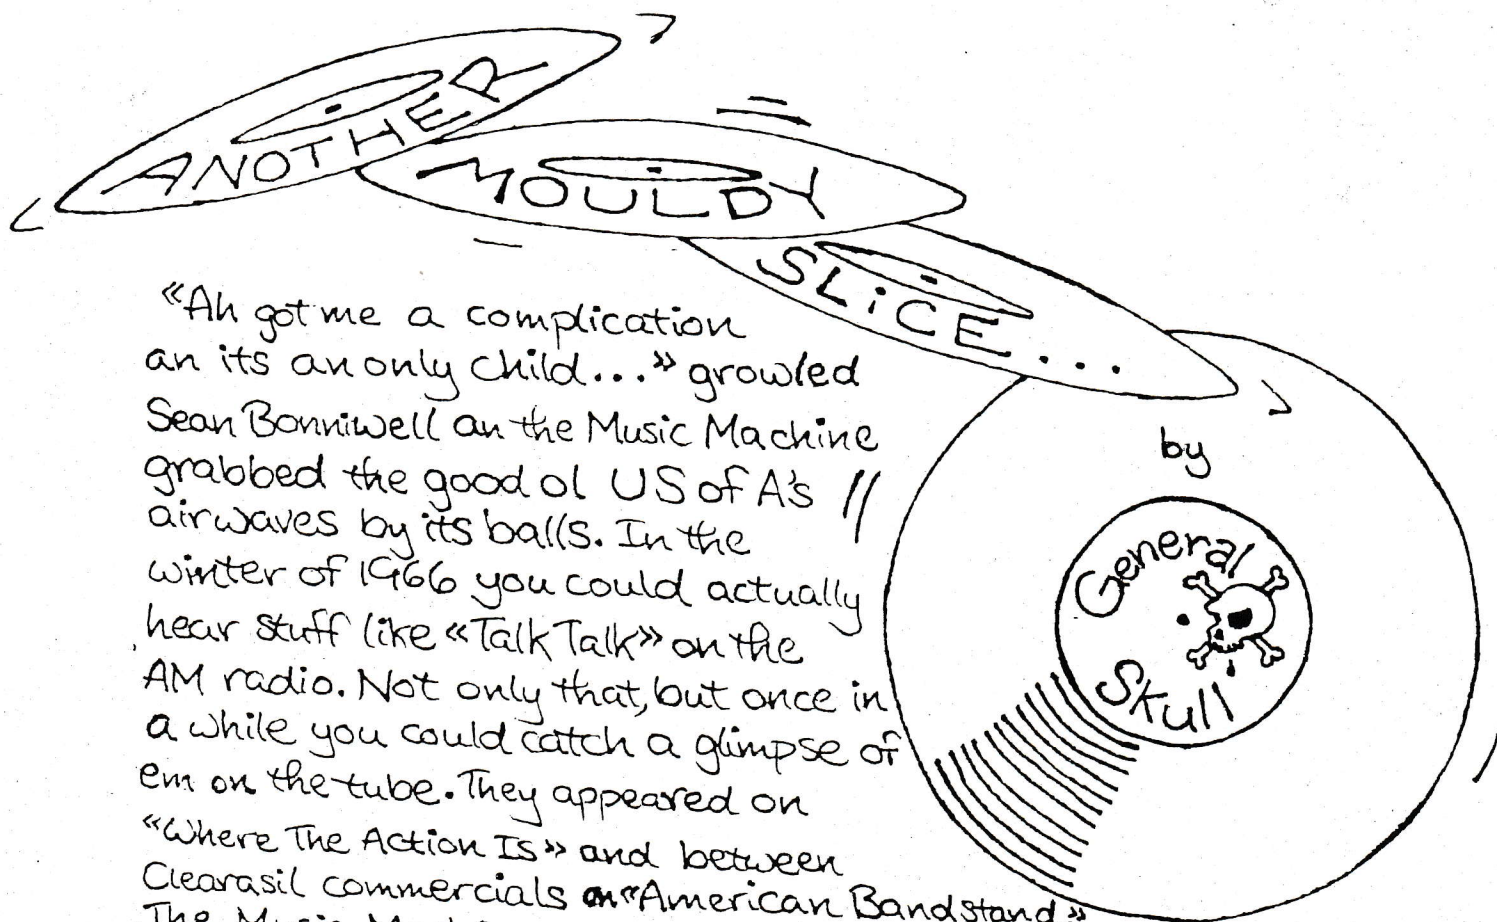 ANOTHER
MOULDY
SLiCE...
by
General
Skull
«Ah got me a complication
an its an only child...» growled
Sean Bonniwell an the Music Machine
grabbed the good ol US of A's
airwaves by its balls. In the
winter of 1966 you could actually
hear stuff like «Talk Talk» on the
AM radio. Not only that, but once in
a while you could catch a glimpse of
em on the tube. They appeared on
«Where The Action Is» and between
Clearasil commercials on «American Bandstand»
The Music